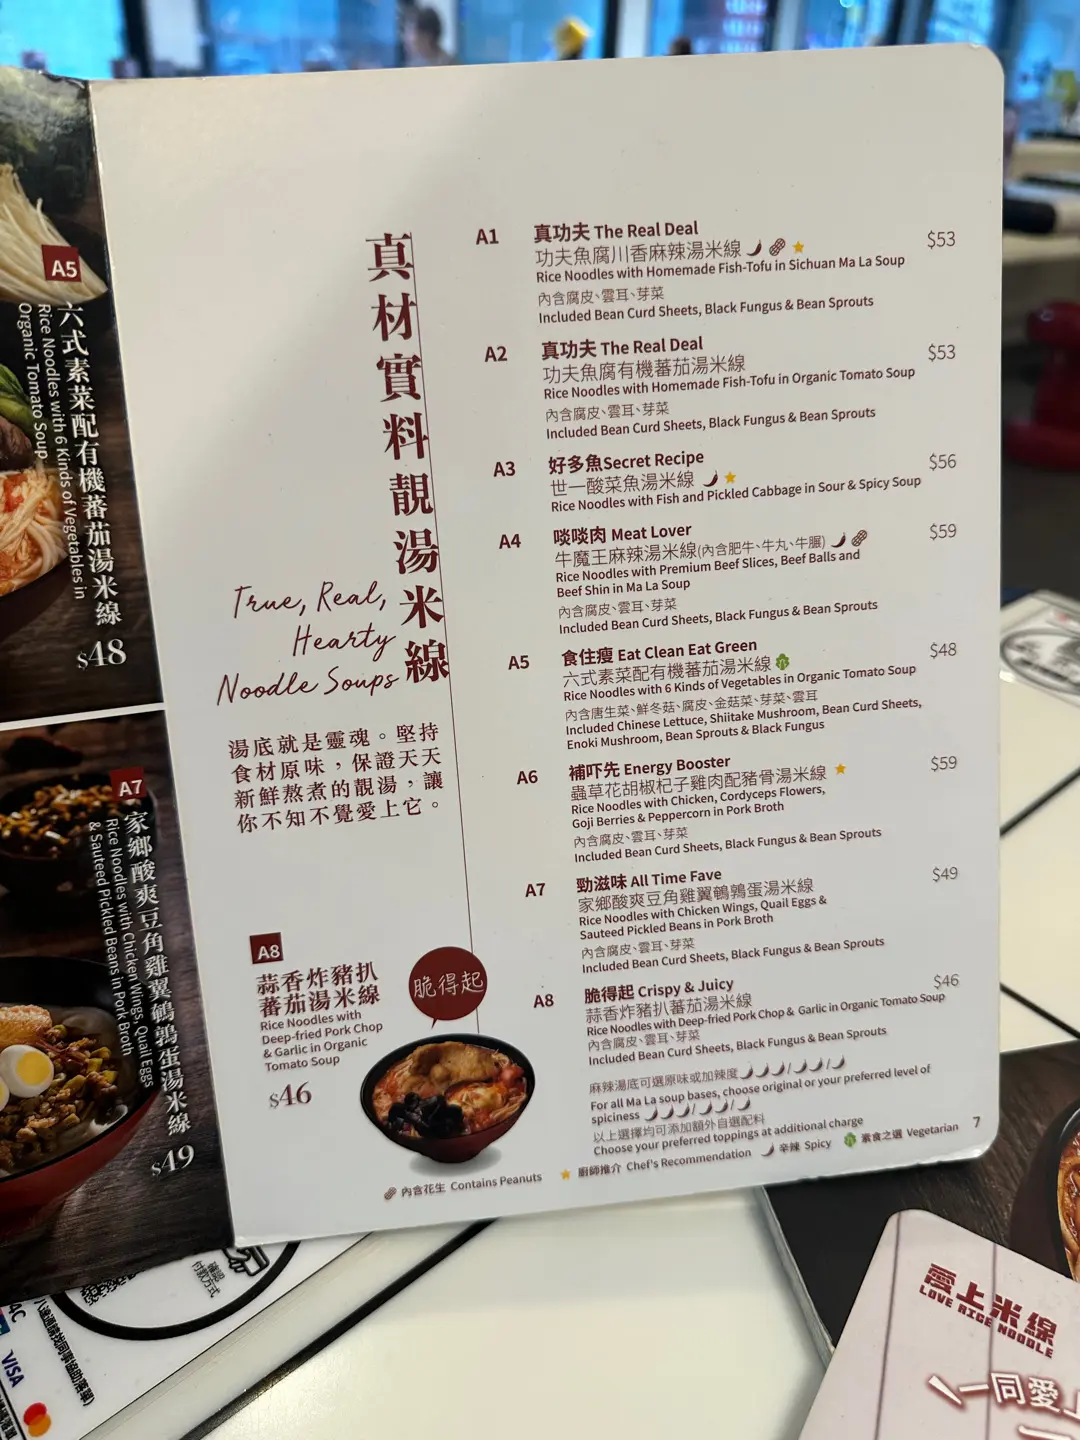 A5
六式素菜配有機蕃茄湯米線
Rice Noodles with 6 Kinds of Vegetables in
Organic Tomato Soup
$48
A7
家鄉酸爽豆角雞翼鵪鶉蛋湯米線
Rice Noodles with Chicken Wings, Quail Eggs
& Sauteed Pickled Beans in Pork Broth
$49
真材實料靚湯米線
True, Real,
Hearty
Noodle Soups
湯底就是靈魂。堅持
食材原味，保證天天
新鮮熬煮的靚湯，讓
你不知不覺愛上它。
A8
蒜香炸豬扒
蕃茄湯米線
Rice Noodles with
Deep-fried Pork Chop
& Garlic in Organic
Tomato Soup
$46
脆得起
A1 真功夫 The Real Deal $53
功夫魚腐川香麻辣湯米線
Rice Noodles with Homemade Fish-Tofu in Sichuan Ma La Soup
內含腐皮、雲耳、芽菜
Included Bean Curd Sheets, Black Fungus & Bean Sprouts
A2 真功夫 The Real Deal $53
功夫魚腐有機蕃茄湯米線
Rice Noodles with Homemade Fish-Tofu in Organic Tomato Soup
內含腐皮、雲耳、芽菜
Included Bean Curd Sheets, Black Fungus & Bean Sprouts
A3 好多魚Secret Recipe $56
世一酸菜魚湯米線
Rice Noodles with Fish and Pickled Cabbage in Sour & Spicy Soup
A4 啖啖肉 Meat Lover $59
牛魔王麻辣湯米線(內含肥牛、牛丸、牛𦟌)
Rice Noodles with Premium Beef Slices, Beef Balls and
Beef Shin in Ma La Soup
內含腐皮、雲耳、芽菜
Included Bean Curd Sheets, Black Fungus & Bean Sprouts
A5 食住瘦 Eat Clean Eat Green $48
六式素菜配有機蕃茄湯米線
Rice Noodles with 6 Kinds of Vegetables in Organic Tomato Soup
內含唐生菜、鮮冬菇、腐皮、金菇菜、芽菜、雲耳
Included Chinese Lettuce, Shiitake Mushroom, Bean Curd Sheets,
Enoki Mushroom, Bean Sprouts & Black Fungus
A6 補吓先 Energy Booster $59
蟲草花胡椒杞子雞肉配豬骨湯米線
Rice Noodles with Chicken, Cordyceps Flowers,
Goji Berries & Peppercorn in Pork Broth
內含腐皮、雲耳、芽菜
Included Bean Curd Sheets, Black Fungus & Bean Sprouts
A7 勁滋味 All Time Fave $49
家鄉酸爽豆角雞翼鵪鶉蛋湯米線
Rice Noodles with Chicken Wings, Quail Eggs &
Sauteed Pickled Beans in Pork Broth
內含腐皮、雲耳、芽菜
Included Bean Curd Sheets, Black Fungus & Bean Sprouts
A8 脆得起 Crispy & Juicy $46
蒜香炸豬扒蕃茄湯米線
Rice Noodles with Deep-fried Pork Chop & Garlic in Organic Tomato Soup
內含腐皮、雲耳、芽菜
Included Bean Curd Sheets, Black Fungus & Bean Sprouts
麻辣湯底可選原味或加辣度
For all Ma La soup bases, choose original or your preferred level of
spiciness
以上選擇均可添加額外自選配料
Choose your preferred toppings at additional charge
內含花生 Contains Peanuts 廚師推介 Chef's Recommendation 辛辣 Spicy 素食之選 Vegetarian 7
確認
付款方式
VISA
愛上米線
LOVE RICE NOODLE
一同愛上